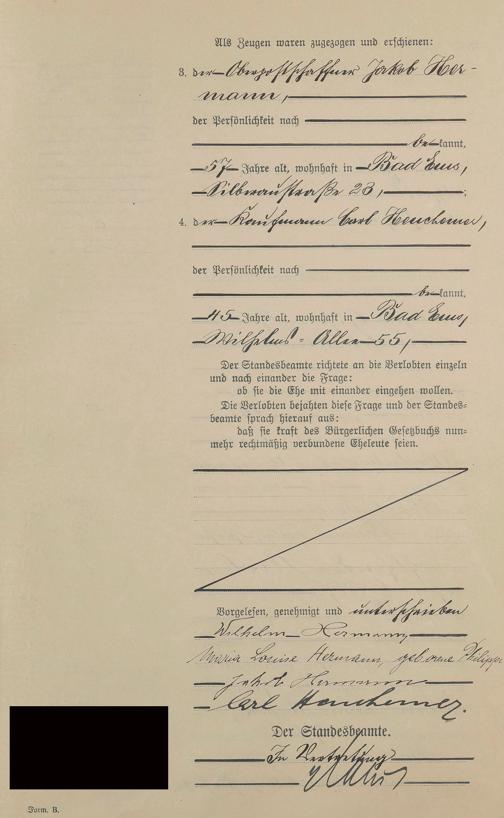 Als Zeugen waren zugezogen und erschienen:
3. der Oberpostschaffner Jakob Her-
mann,
der Persönlichkeit nach
bekannt,
57 Jahre alt, wohnhaft in Bad Ems,
Silberaustraße 28,
4. der Kaufmann Carl Heuchemer,
der Persönlichkeit nach
bekannt,
45 Jahre alt, wohnhaft in Bad Ems,
Wilhelms=Allee 55,
Der Standesbeamte richtete an die Verlobten einzeln
und nach einander die Frage:
ob sie die Ehe mit einander eingehen wollen.
Die Verlobten bejahten diese Frage und der Standes=
beamte sprach hierauf aus:
daß sie kraft des Bürgerlichen Gesetzbuchs nun=
mehr rechtmäßig verbundene Eheleute seien.
Vorgelesen, genehmigt und unterschrieben
Wilhelm Hermann
Maria Louise Hermann, geborene Philipps
Jakob Hermann
Carl Heuchemer.
Der Standesbeamte.
In Vertretung
Form. B.